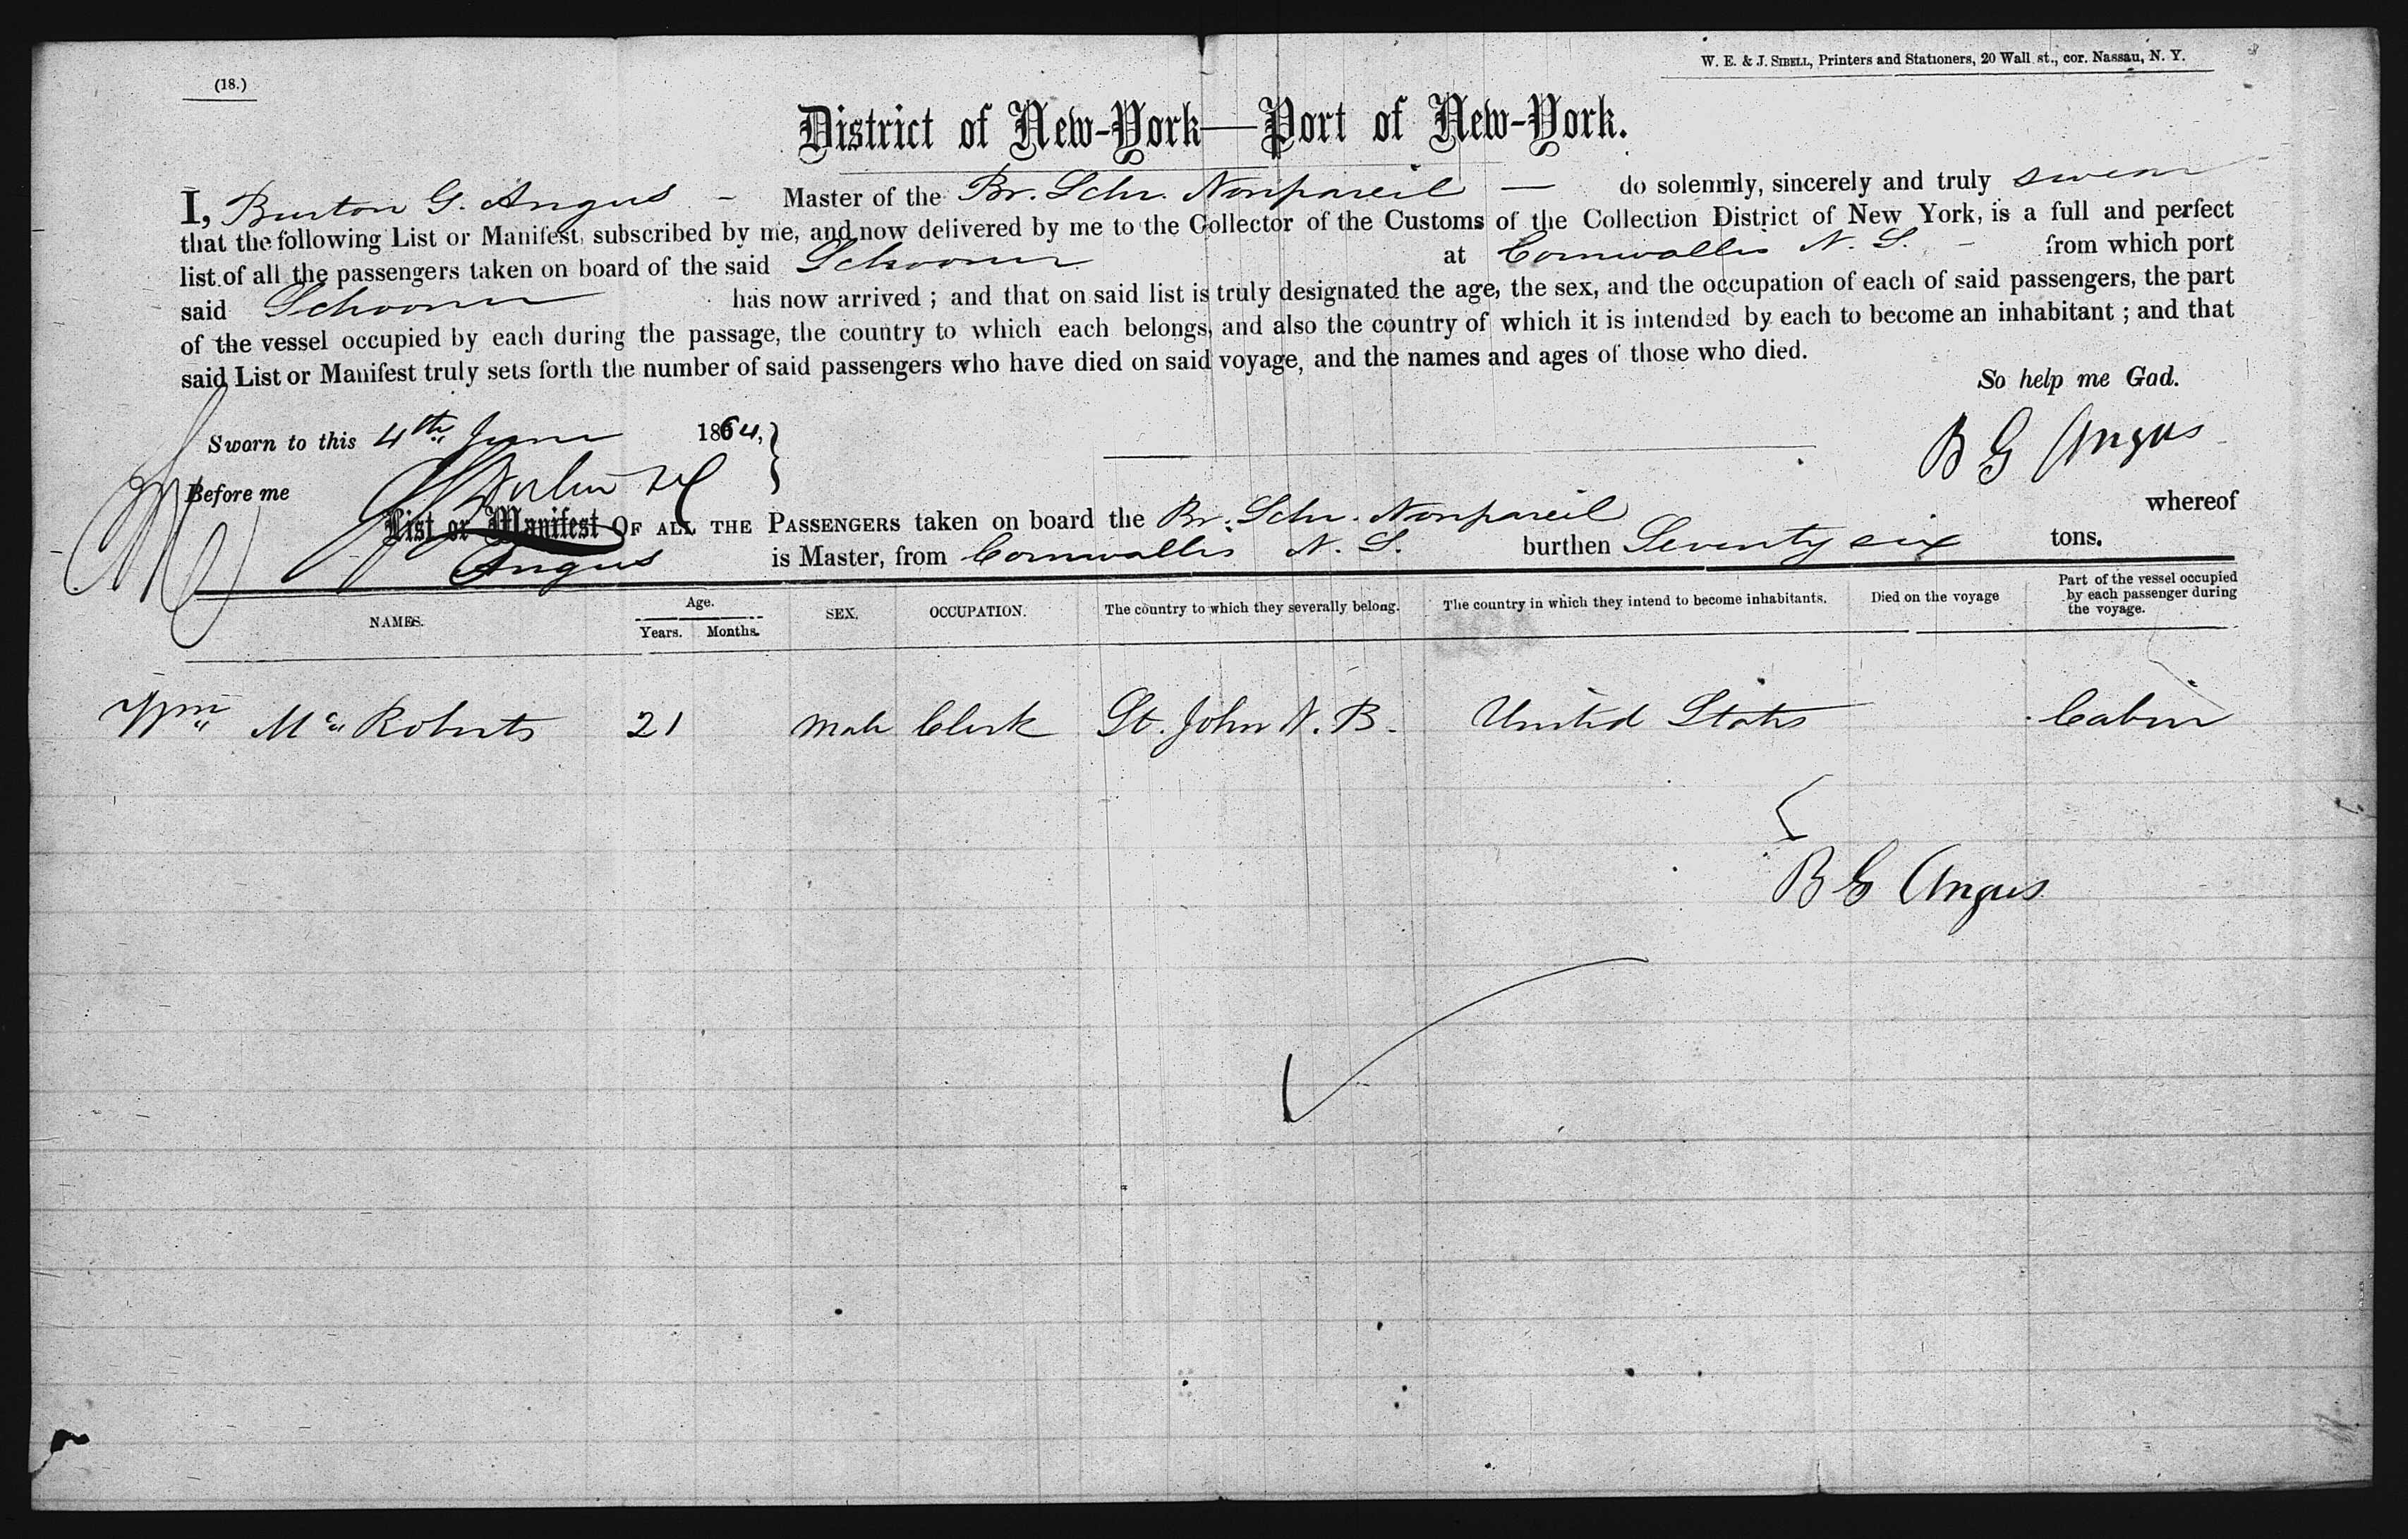 (18.)
W. E. & J. SIBELL, Printers and Stationers, 20 Wall st., cor. Nassau, N. Y.
District of New-York—Port of New-York.
I, Burton G. Angus - Master of the Br. Schr. Nonpareil — do solemnly, sincerely and truly swear
that the following List or Manifest, subscribed by me, and now delivered by me to the Collector of the Customs of the Collection District of New York, is a full and perfect
list of all the passengers taken on board of the said Schooner at Cornwallis N. S. - from which port
said Schooner has now arrived ; and that on said list is truly designated the age, the sex, and the occupation of each of said passengers, the part
of the vessel occupied by each during the passage, the country to which each belongs, and also the country of which it is intended by each to become an inhabitant ; and that
said List or Manifest truly sets forth the number of said passengers who have died on said voyage, and the names and ages of those who died.
So help me God.
Sworn to this 4th June 1864,
B G Angus
Before me
List or Manifest OF ALL THE PASSENGERS taken on board the Br. Schr. Nonpareil whereof
Angus is Master, from Cornwallis N. S. burthen Seventy six tons.
NAMES. Age. Years. Months. SEX. OCCUPATION. The country to which they severally belong. The country in which they intend to become inhabitants. Died on the voyage Part of the vessel occupied by each passenger during the voyage.
Wm Mc Roberts 21 male Clerk St. John N. B. United States Cabin
B G Angus